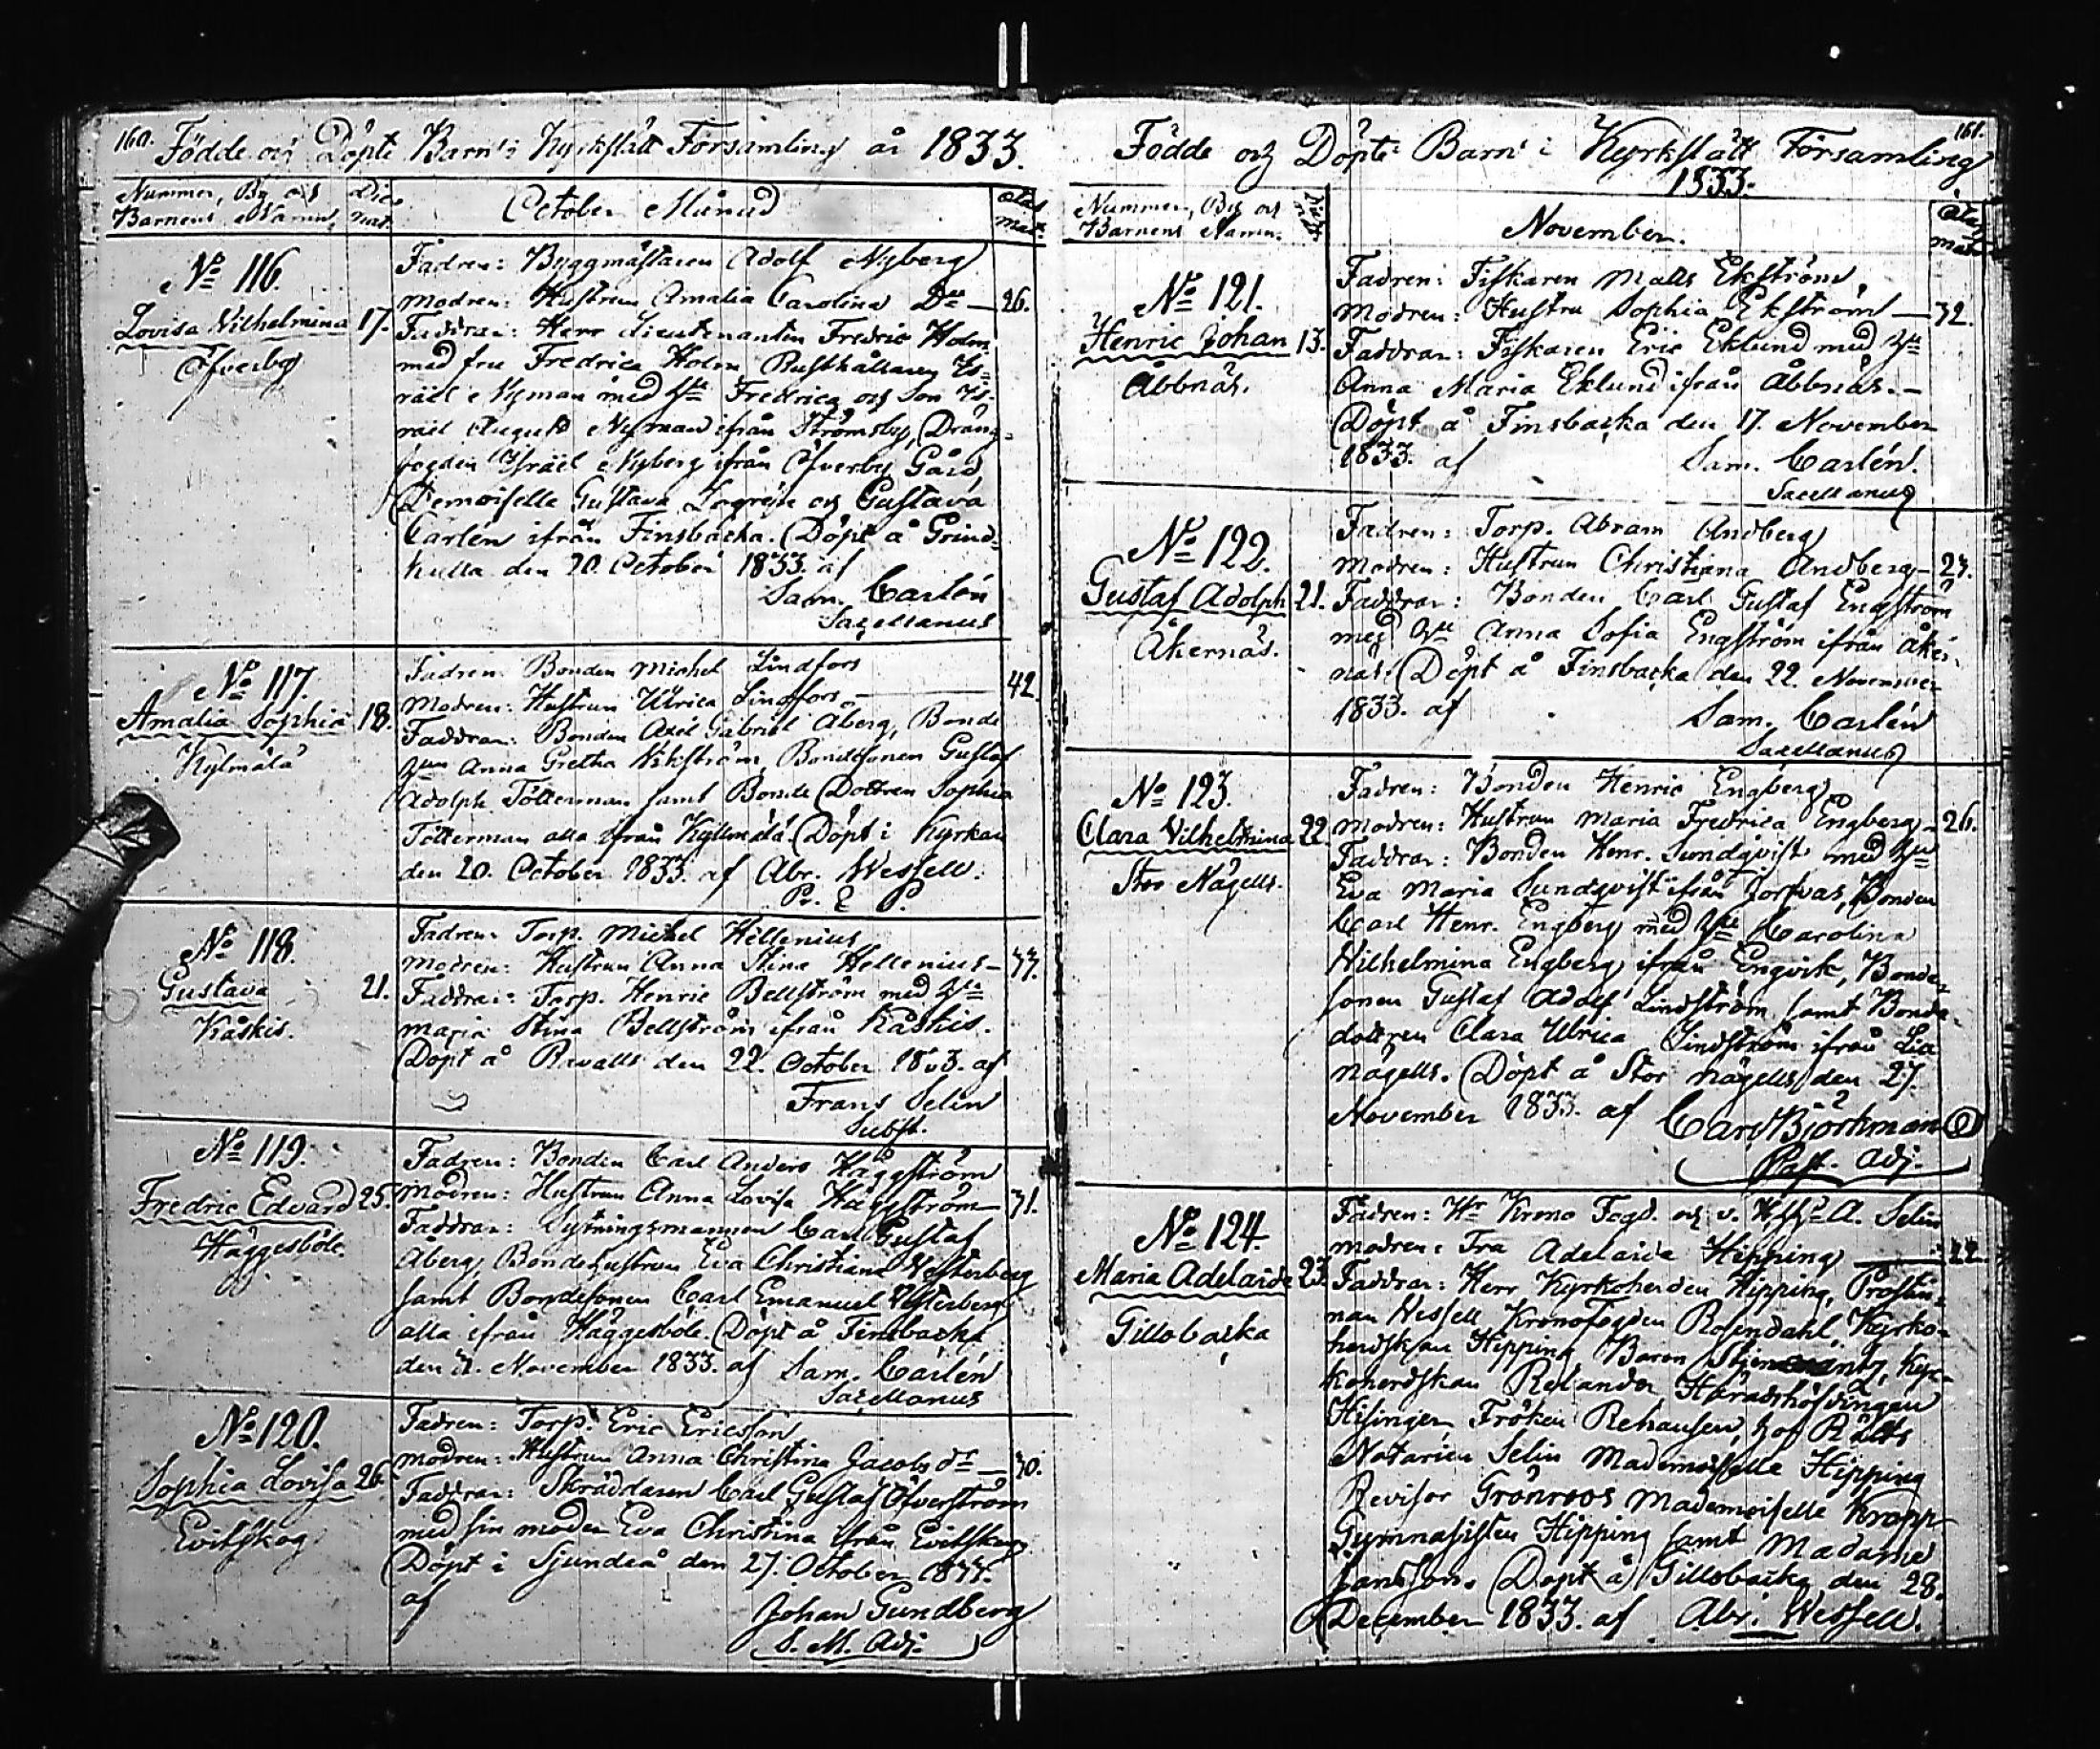 160.
Födde och Döpte Barn i Kyrkslätt Församling år 1833.
Nummer, By och
Barnens Namn.
Die
nat.
October Månad
ætas
mat.
No 116.
Lovisa Wilhelmina 17.
Öfverby
Fadren: Byggmästaren Adolf Nyberg
Modren: Hustrun Amalia Carolina Do — 26.
Faddrar: Herr Lieutenanten Fredric Holm
med fru Fredrica Holm Rusthållaren Is-
raël Nyman med Hu Fredrica och Son Is-
raël August Nyman ifrån Strömsby, Dräng-
fogden Israël Nyberg ifrån Öfverby Gård
Demoiselle Gustava och Gustava
Carlén ifrån Finsbacka. Döpt å Grind-
hulla den 20. October 1833 af
Sam. Carlén
Sacellanus
No 117.
Amalia Sophia 18.
Kylmälä
Fadren: Bonden Michel Lindfors
Modren: Hustrun Ulrica Lindfors. — 42.
Faddrar: Bonden Axel Gabriel Åberg, Bonde
Hun Anna Gretha Wikström, Bondesonen Gustaf
Adolph Tötterman samt Bonde Dottren Sophia
Tötterman alla ifrån Kyllmälä. Döpt i Kyrkan
den 20. October 1833. af Abr. Wessell.
P. & P.
No 118.
Gustava 21.
Kåskis.
Fadren: Torp. Michel Hellenius
Modren: Hustrun Anna Stina Hellenius — 37.
Faddrar: Torp. Henric Bellström med Hu
Maria Stina Bellström ifrån Kåskis.
Döpt å Rewalls den 22. October 1833. af
Frans Selin
Subst.
No 119.
Fredric Edvard 25.
Häggesböle
Fadren: Bonden Carl Anders Häggström
Modren: Hustrun Anna Lovisa Häggström — 31.
Faddrar: Carl Gustaf
Åberg, Bondehustrun Eva Christiana Westerberg
samt Bondesonen Carl Emanuel Westerberg
alla ifrån Häggesböle. Döpt å Finsbacka
den November 1833. af Sam. Carlén
Sacellanus
No 120.
Sophia Lovisa 26.
Evitskog
Fadren: Torp. Eric Ericsson
Modren: Hustrun Anna Christina Jacobs dr — 30.
Faddrar: Skräddaren Carl Gustaf Öfverström
med sin moder Eva Christina ifrån Evitskog.
Döpt i Sjundeå den 27. October 1833.
af
Johan Gundberg
S. M. Adj.
161.
Födde och Döpte Barn i Kyrkslätt Församling
1833.
Nummer, By och
Barnens Namn.
November.
ætas
mat.
No 121.
Henric Johan 13.
Åbbnäs.
Fadren: Fiskaren Matts Ekström,
Modren: Hustru Sophia Ekström — 32.
Faddrar: Fiskaren Eric Eklund med Hu
Anna Maria Eklund ifrån Åbbnäs. —
Döpt å Finsbacka den 17. November
1833. af Sam. Carlén.
Sacellanus
No 122.
Gustaf Adolph 21.
Åkernäs.
Fadren: Torp. Abram Andberg
Modren: Hustrun Christiana Andberg — 23.
Faddrar: Bonden Carl Gustaf Engström
med Hu Anna Sofia Engström ifrån Åker-
näs. Döpt å Finsbacka den 22. November
1833. af Sam. Carlén
Sacellanus
No 123.
Clara Wilhelmina 22.
Stor Nägells.
Fadren: Bonden Henric Engberg
Modren: Hustrun Maria Fredrica Engberg — 26.
Faddrar: Bonden Henr. Sundqvist med Hu
Eva Maria Sundqvist ifrån Jorfvas, Bonden
Carl Henr. Engberg med Hu Carolina
Wilhelmina Engberg ifrån Engvik, Bonde-
sonen Gustaf Adolf Lindström samt Bonde-
dottren Clara Ulrica Lindström ifrån Lill
nägells. Döpt å Stor nägells den 27.
November 1833. af Carl Björkman
Past. Adj.
No 124.
Maria Adelaide 23.
Gillobacka
Fadren: Hr Krono Fogd. och v. A. Selin
Modren: Fru Adelaide Hipping — 22.
Faddrar: Herr Kyrkoherden Hipping, Prostin-
nan Wessell Kronofogden Rosendahl, Kyrko-
herdskan Hipping Baron Kyr-
koherdskan Relander Häradshöfdingen
Hisinger Fröken Rehausen, Hof Rätts
Notarien Selin Mademoiselle Hipping
Revisor Grönroos Mademoiselle
Gymnasisten Hipping samt Madame
Jansson. Döpt å Gillobacka den 28.
December 1833. af Abr. Wessell.